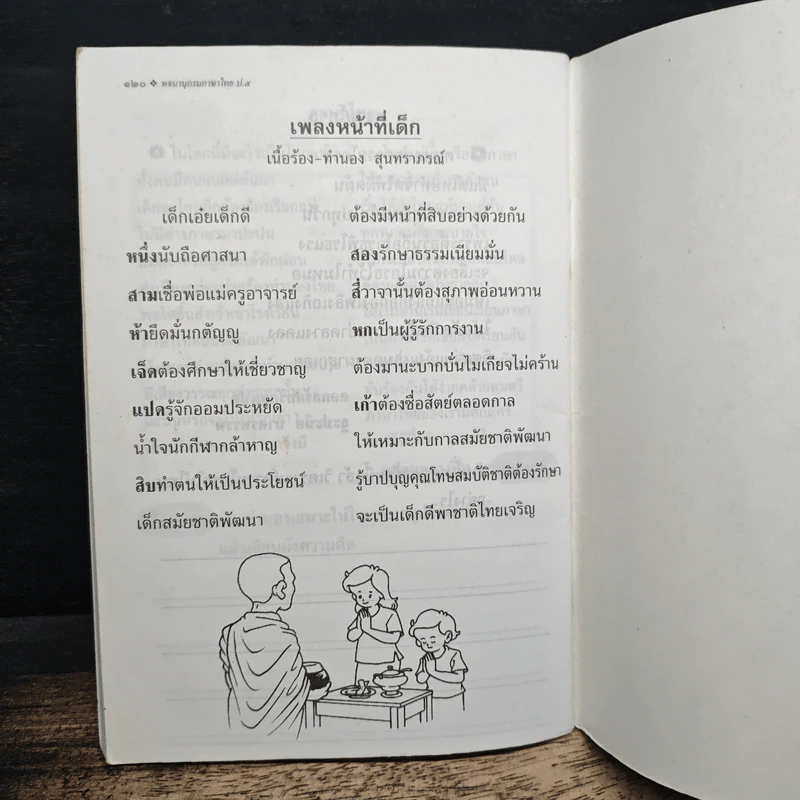 ๑๒๐ ❖ พจนานุกรมภาษาไทย ป.๕
เพลงหน้าที่เด็ก
เนื้อร้อง-ทำนอง สุนทราภรณ์
เด็กเอ๋ยเด็กดี ต้องมีหน้าที่สิบอย่างด้วยกัน
หนึ่งนับถือศาสนา สองรักษาธรรมเนียมมั่น
สามเชื่อพ่อแม่ครูอาจารย์ สี่วาจานั้นต้องสุภาพอ่อนหวาน
ห้ายึดมั่นกตัญญู หกเป็นผู้รู้รักการงาน
เจ็ดต้องศึกษาให้เชี่ยวชาญ ต้องมานะบากบั่นไม่เกียจไม่คร้าน
แปดรู้จักออมประหยัด เก้าต้องซื่อสัตย์ตลอดกาล
น้ำใจนักกีฬากล้าหาญ ให้เหมาะกับกาลสมัยชาติพัฒนา
สิบทำตนให้เป็นประโยชน์ รู้บาปบุญคุณโทษสมบัติชาติต้องรักษา
เด็กสมัยชาติพัฒนา จะเป็นเด็กดีพาชาติไทยเจริญ